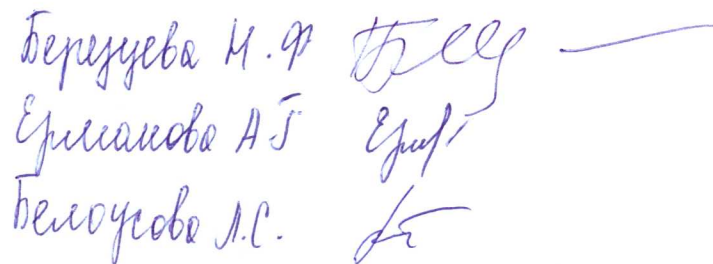 Березуева Н.Ф
Ермакова АГ
Белоусова Л.С.